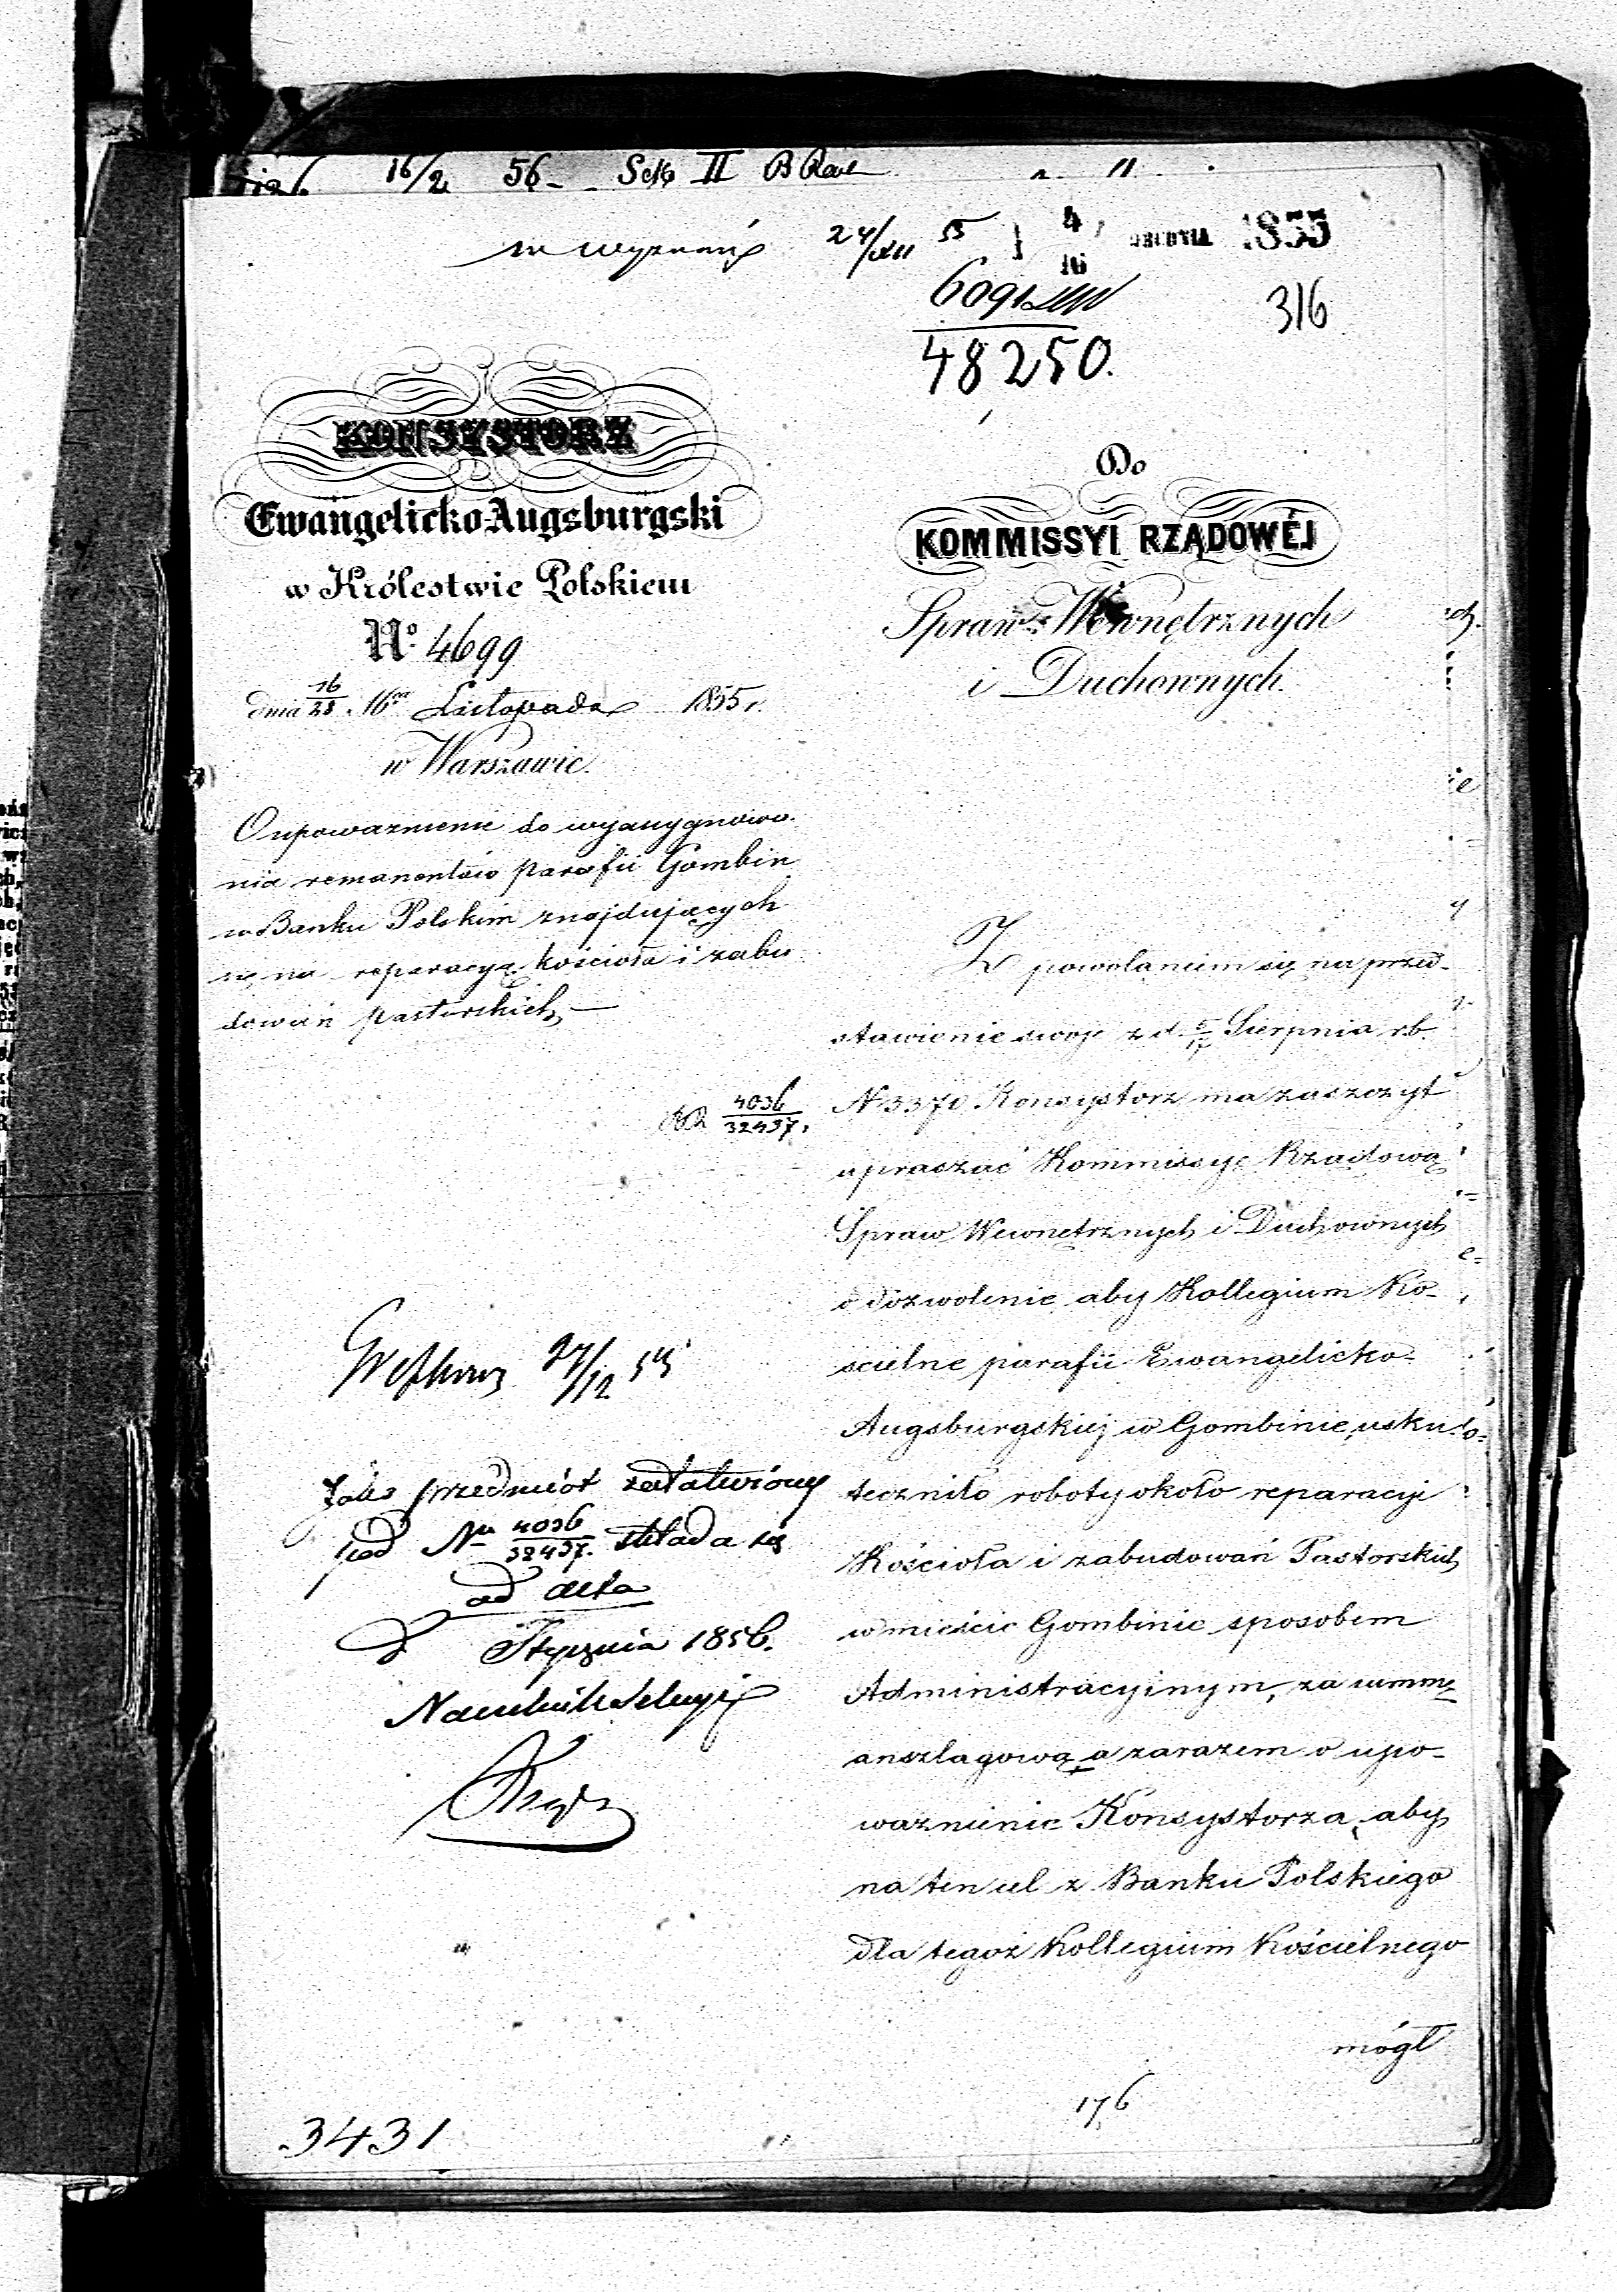 16/2 56 Sek II
w wyznań 24/XII 55 4/16 1855
6091
48250.
316
KONSYSTORZ
Ewangelicko-Augsburgski
w Królestwie Polskiem
No. 4699
dnia 16/28 Listopada 1855 r.
w Warszawie.
Do
KOMMISSYI RZĄDOWÉJ
Spraw Wewnętrznych
i Duchownych.
O upoważnienie do wyassygnowa-
nia remanentów parafii Gombin
w Banku Polskim znajdujących
się, na reparacyą kościoła i zabu
dowań pastorskich
4036
32457.
27/12 55
Jako przedmiót załatwióny
pod Nr 4036/32457. składa się
ad acta
d Stycznia 1856.
Naczelnik Sekcyi
3431
Z powołaniem się na przed-
stawienie swoje z d. 5/17 Sierpnia r.b.
N 3370 Konsystorz ma zaszczyt
upraszać Kommissyę Rządową
Spraw Wewnętrznych i Duchownych
o dozwolenie aby Kollegium Ko-
scielne parafii Ewangelicko-
Augsburgskiej w Gombinie, usku-
teczniło roboty około reparacyi
Kościoła i zabudowań Pastorskich
w mieście Gombinie sposobem
Administracyjnym, za summę
anszlagową a zarazem o upo-
ważnienie Konsystorza, aby
na ten cel z Banku Polskiego
dla tegoż Kollegium Kościelnego
mógł
176